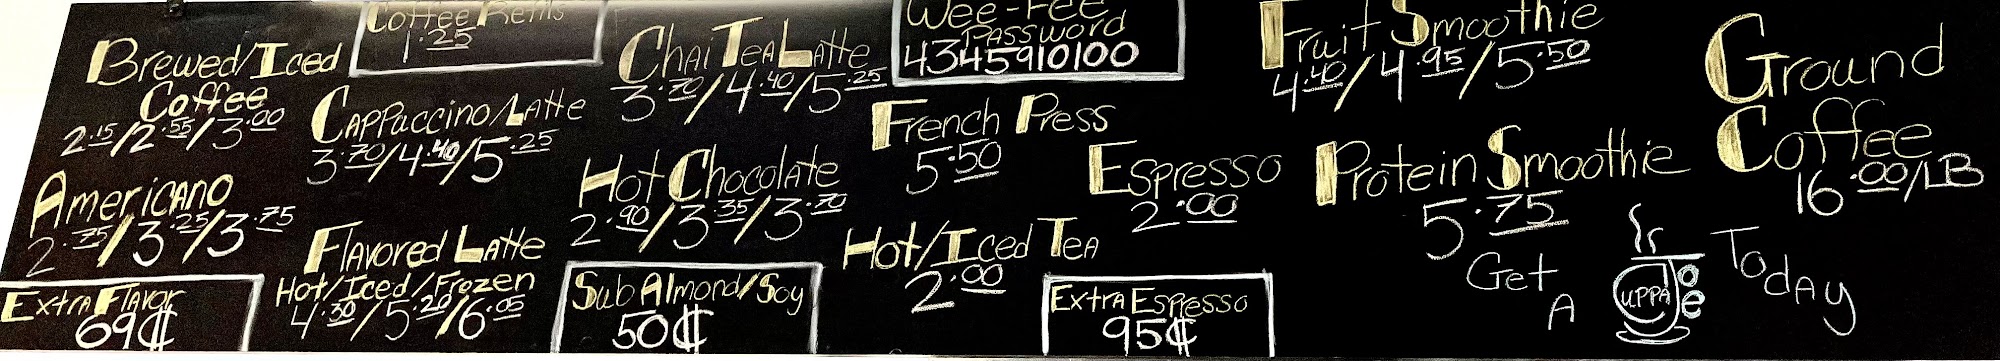 Brewed/Iced
Coffee
2.15/2.55/3.00
Americano
2.75/3.25/3.75
Extra Flavor
69¢
Coffee Refills
1.25
Cappuccino/Latte
3.70/4.40/5.25
Flavored Latte
Hot/Iced/Frozen
4.30/5.20/6.05
Chai Tea Latte
3.70/4.40/5.25
Hot Chocolate
2.90/3.35/3.70
Sub Almond/Soy
50¢
Wee-Fee
Password
4345910100
French Press
5.50
Hot/Iced Tea
2.00
Espresso
2.00
Extra Espresso
95¢
Fruit Smoothie
4.40/4.95/5.50
Protein Smoothie
5.75
Ground
Coffee
16.00/LB
Get
A
Cuppa
Joe
Today